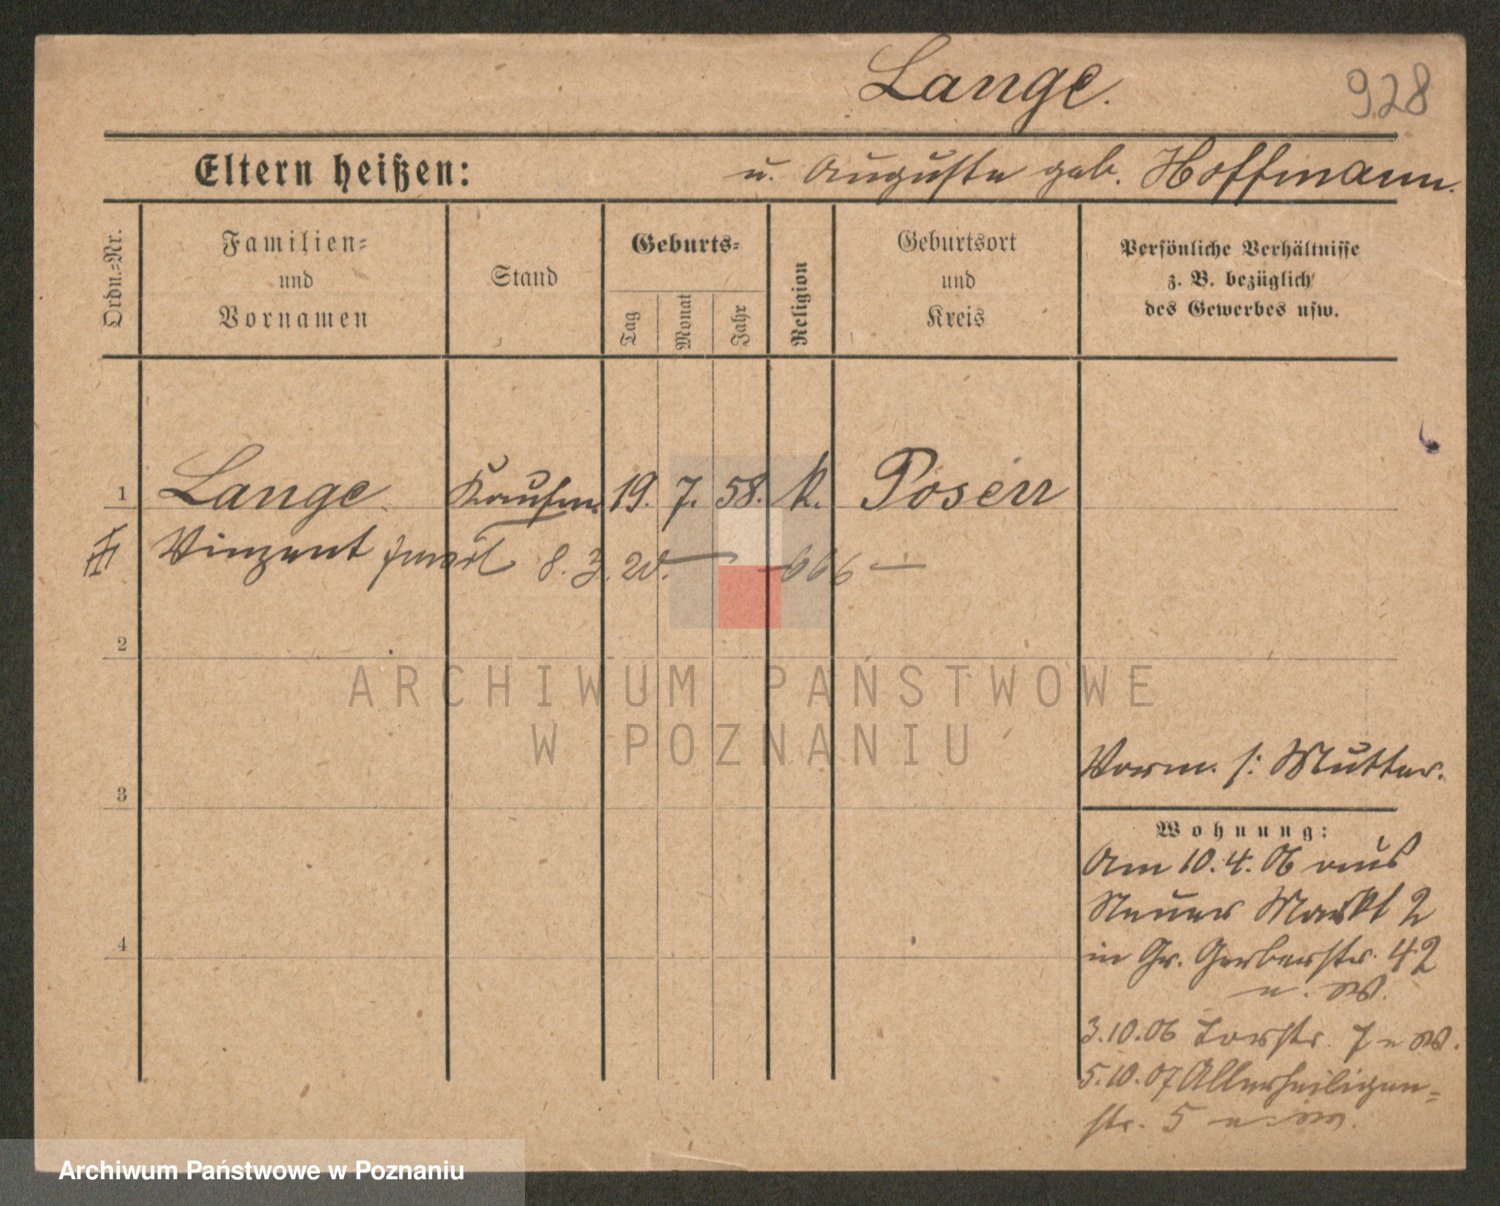 Lange.
928
Eltern heißen:
u. Auguste geb. Hoffmann.
Ordn.-Nr.
Familien-
und
Vornamen
Stand
Geburts-
Tag
Monat
Jahr
Religion
Geburtsort
und
Kreis
Persönliche Verhältnisse
z. B. bezüglich
des Gewerbes usw.
1
Lange
Kaufm.
19.
7.
58.
k.
Posen
Vinzent
8. 3. 20.
666
2
3
4
Vorm. s: Mutter.
Wohnung:
Am 10.4.06 aus
Neuer Markt 2
in Gr. Gerberstr. 42
3.10.06 Torstr. 7
5.10.07 Allerheiligen-
str. 5
ARCHIWUM PAŃSTWOWE
W POZNANIU
Archiwum Państwowe w Poznaniu